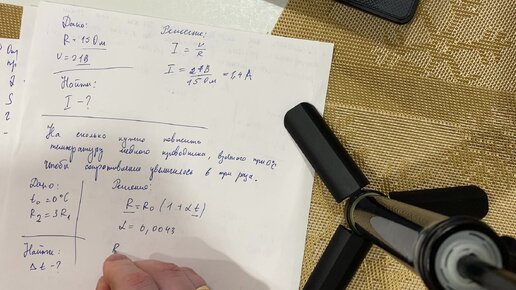 Дано:
R = 15 Ом
U = 21В
Найти:
I - ?
Решение:
I = U/R
I = 21В/15 Ом = 1,4 А
На сколько нужно повысить
температуру медного проводника, взятого при 0°C
чтобы сопротивление увеличилось в три раза.
Дано:
t₀ = 0°C
R₂ = 3R₁
Найти:
Δt - ?
Решение:
R = R₀ (1 + αt)
α = 0,0043
R